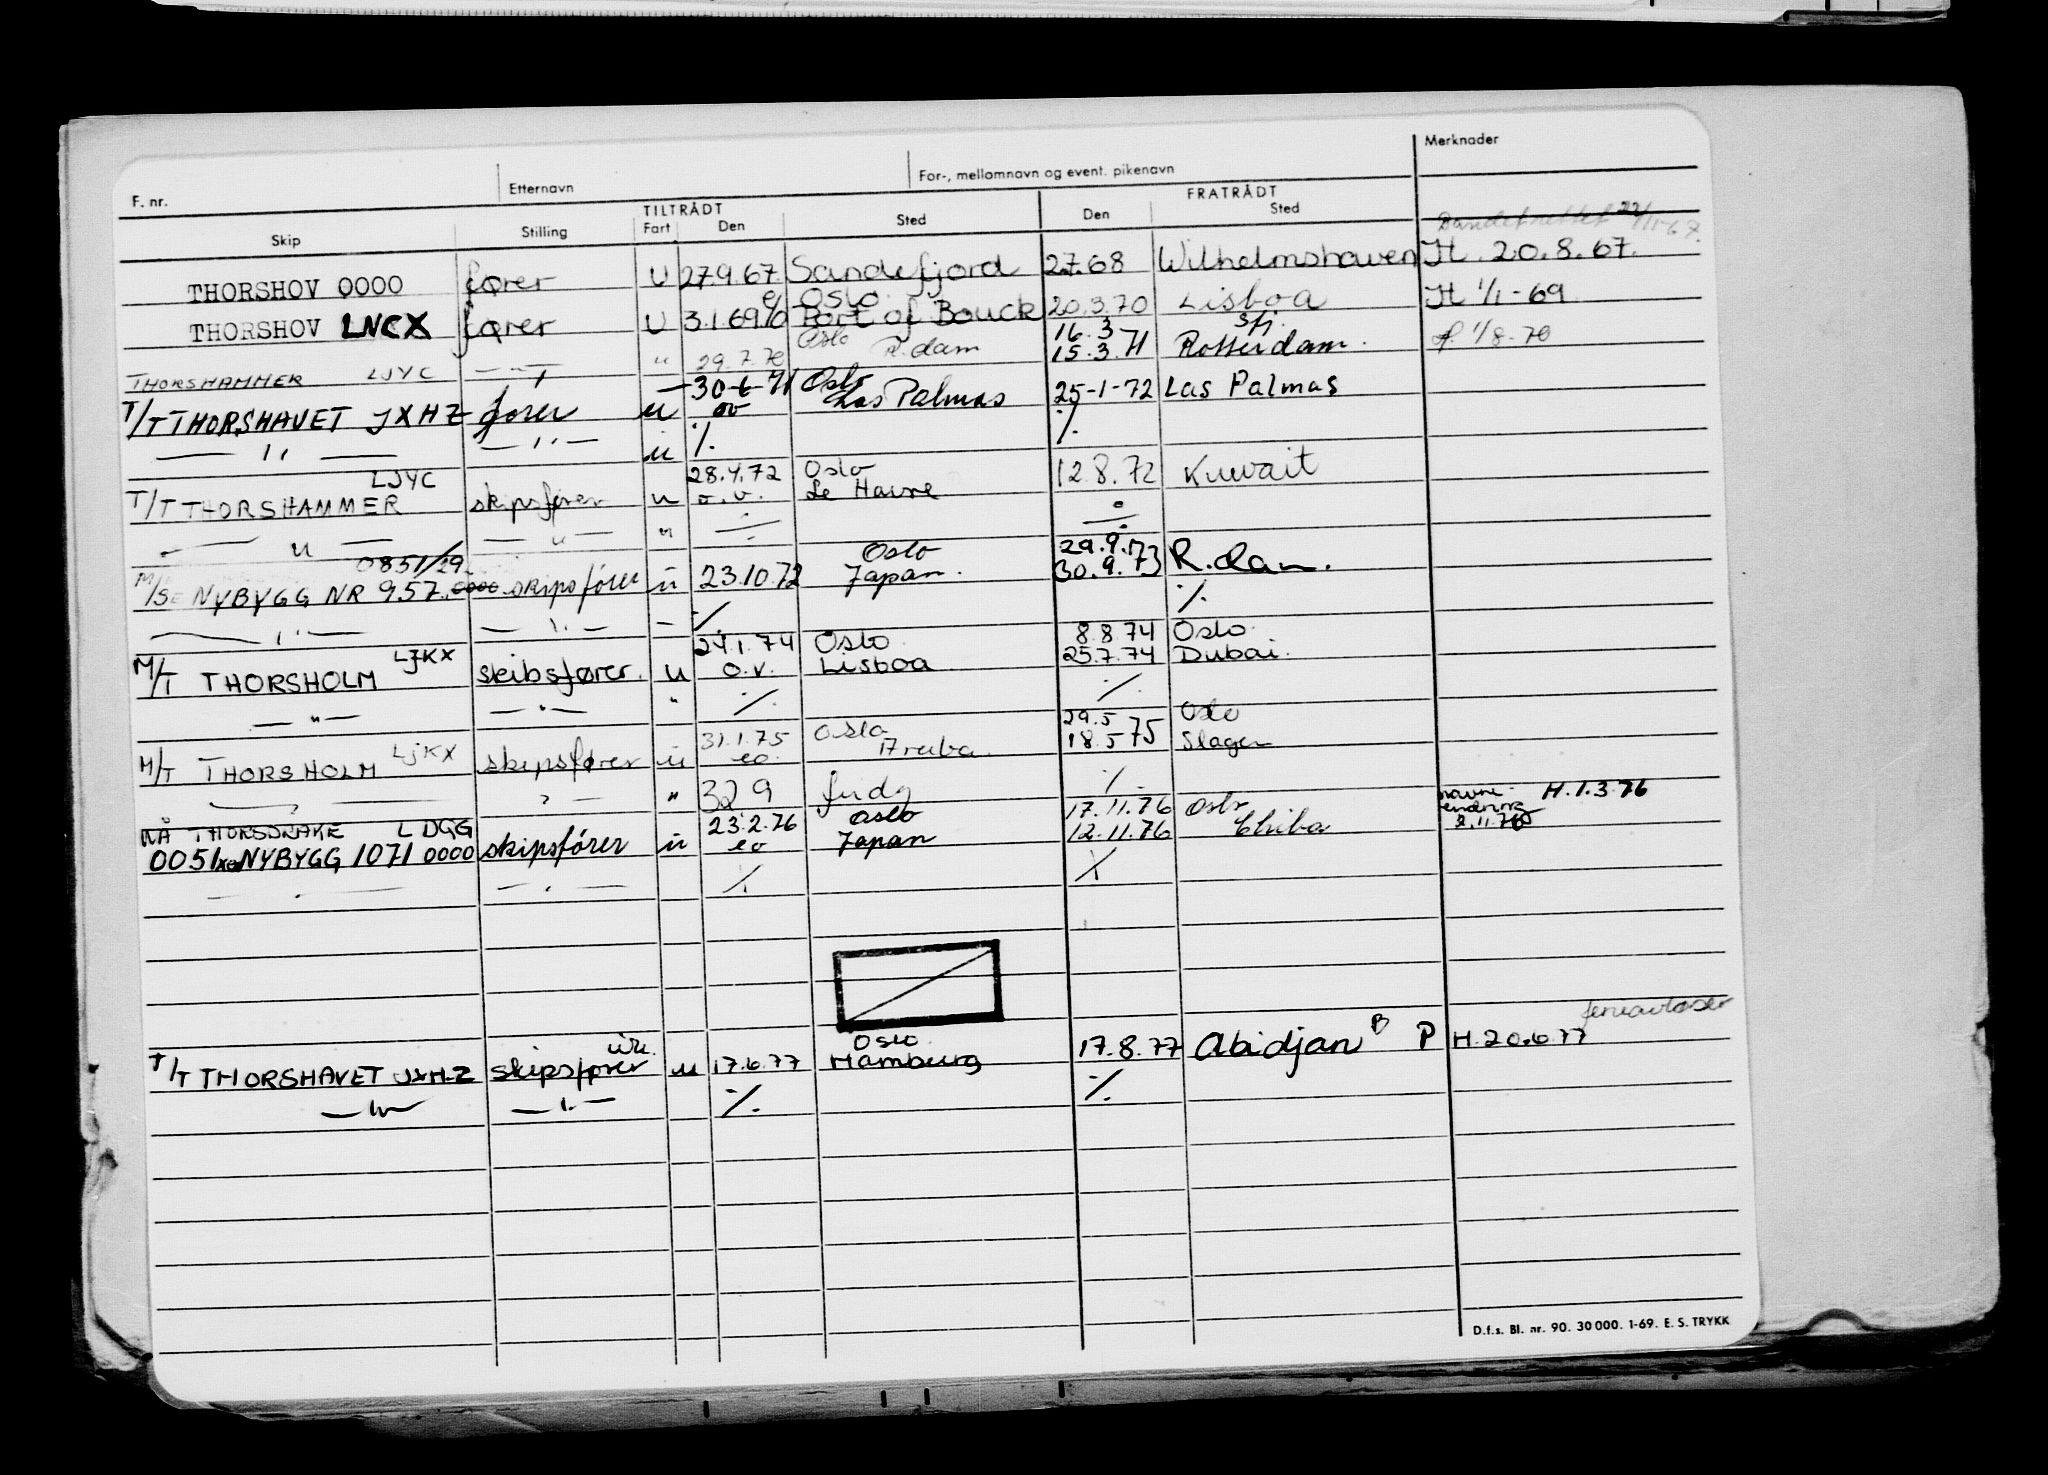 F. nr. Etternavn For-, mellomnavn og event. pikenavn Merknader
TILTRÅDT FRATRÅDT
Skip Stilling Fart Den Sted Den Sted
22/11-67.
THORSHOV 0000 fører U 27.9.67 Sandefjord 2.7.68 Wilhelmshaven H. 20.8.67.
Oslo
THORSHOV LNCX fører U 3.1.69 Port of Bouck 20.3.70 Lisboa H 1/1-69
Oslo 16.3 Sfj.
THORSHAMMER LJYC — " — " 29.7.70 R.dam 15.3.71 Rotterdam. 1/8-70
30-6-71 Oslo
T/T THORSHAVET JXHZ fører u ov Las Palmas 25-1-72 Las Palmas
— " — — " — u ./. ./.
LJYC 28.4.72 Oslo
T/T THORSHAMMER skipsfører u o.v. Le Havre 12.8.72 Kuwait
— " — — " — " ./. ./.
0851/29 Oslo 29.9.73
M/S NYBYGG NR 957 0000 skipsfører u 23.10.72 Japan. 30.9.73 R.dam.
— " — — " — — ./. ./.
LJKX 24.1.74 Oslo 8.8.74 Oslo
M/T THORSHOLM skibsfører. u o.v. Lisboa 25.7.74 Dubai.
— " — — " — " ./. ./.
31.1.75 Oslo 29.5 Oslo
M/T THORSHOLM LJKX skipsfører u eo. Aruba. 18.5 75 Slagen
— " — — " — " 329 ./.
NÅ THORSDRAKE LDGG 23.2.76 Oslo 17.11.76 Oslo navne- H.1.3.76
0051 NYBYGG 1071 0000 skipsfører u eo Japan 12.11.76 Chiba endring 8.11.76
— " — — " — ./. ./.
ferieavløser
Oslo
T/T THORSHAVET JXHZ skipsfører u 17.6.77 Hamburg 17.8.77 Abidjan B P H.20.6.77
— " — — " — ./. ./.
D.f.s. Bl. nr. 90. 30 000. 1-69. E. S. TRYKK